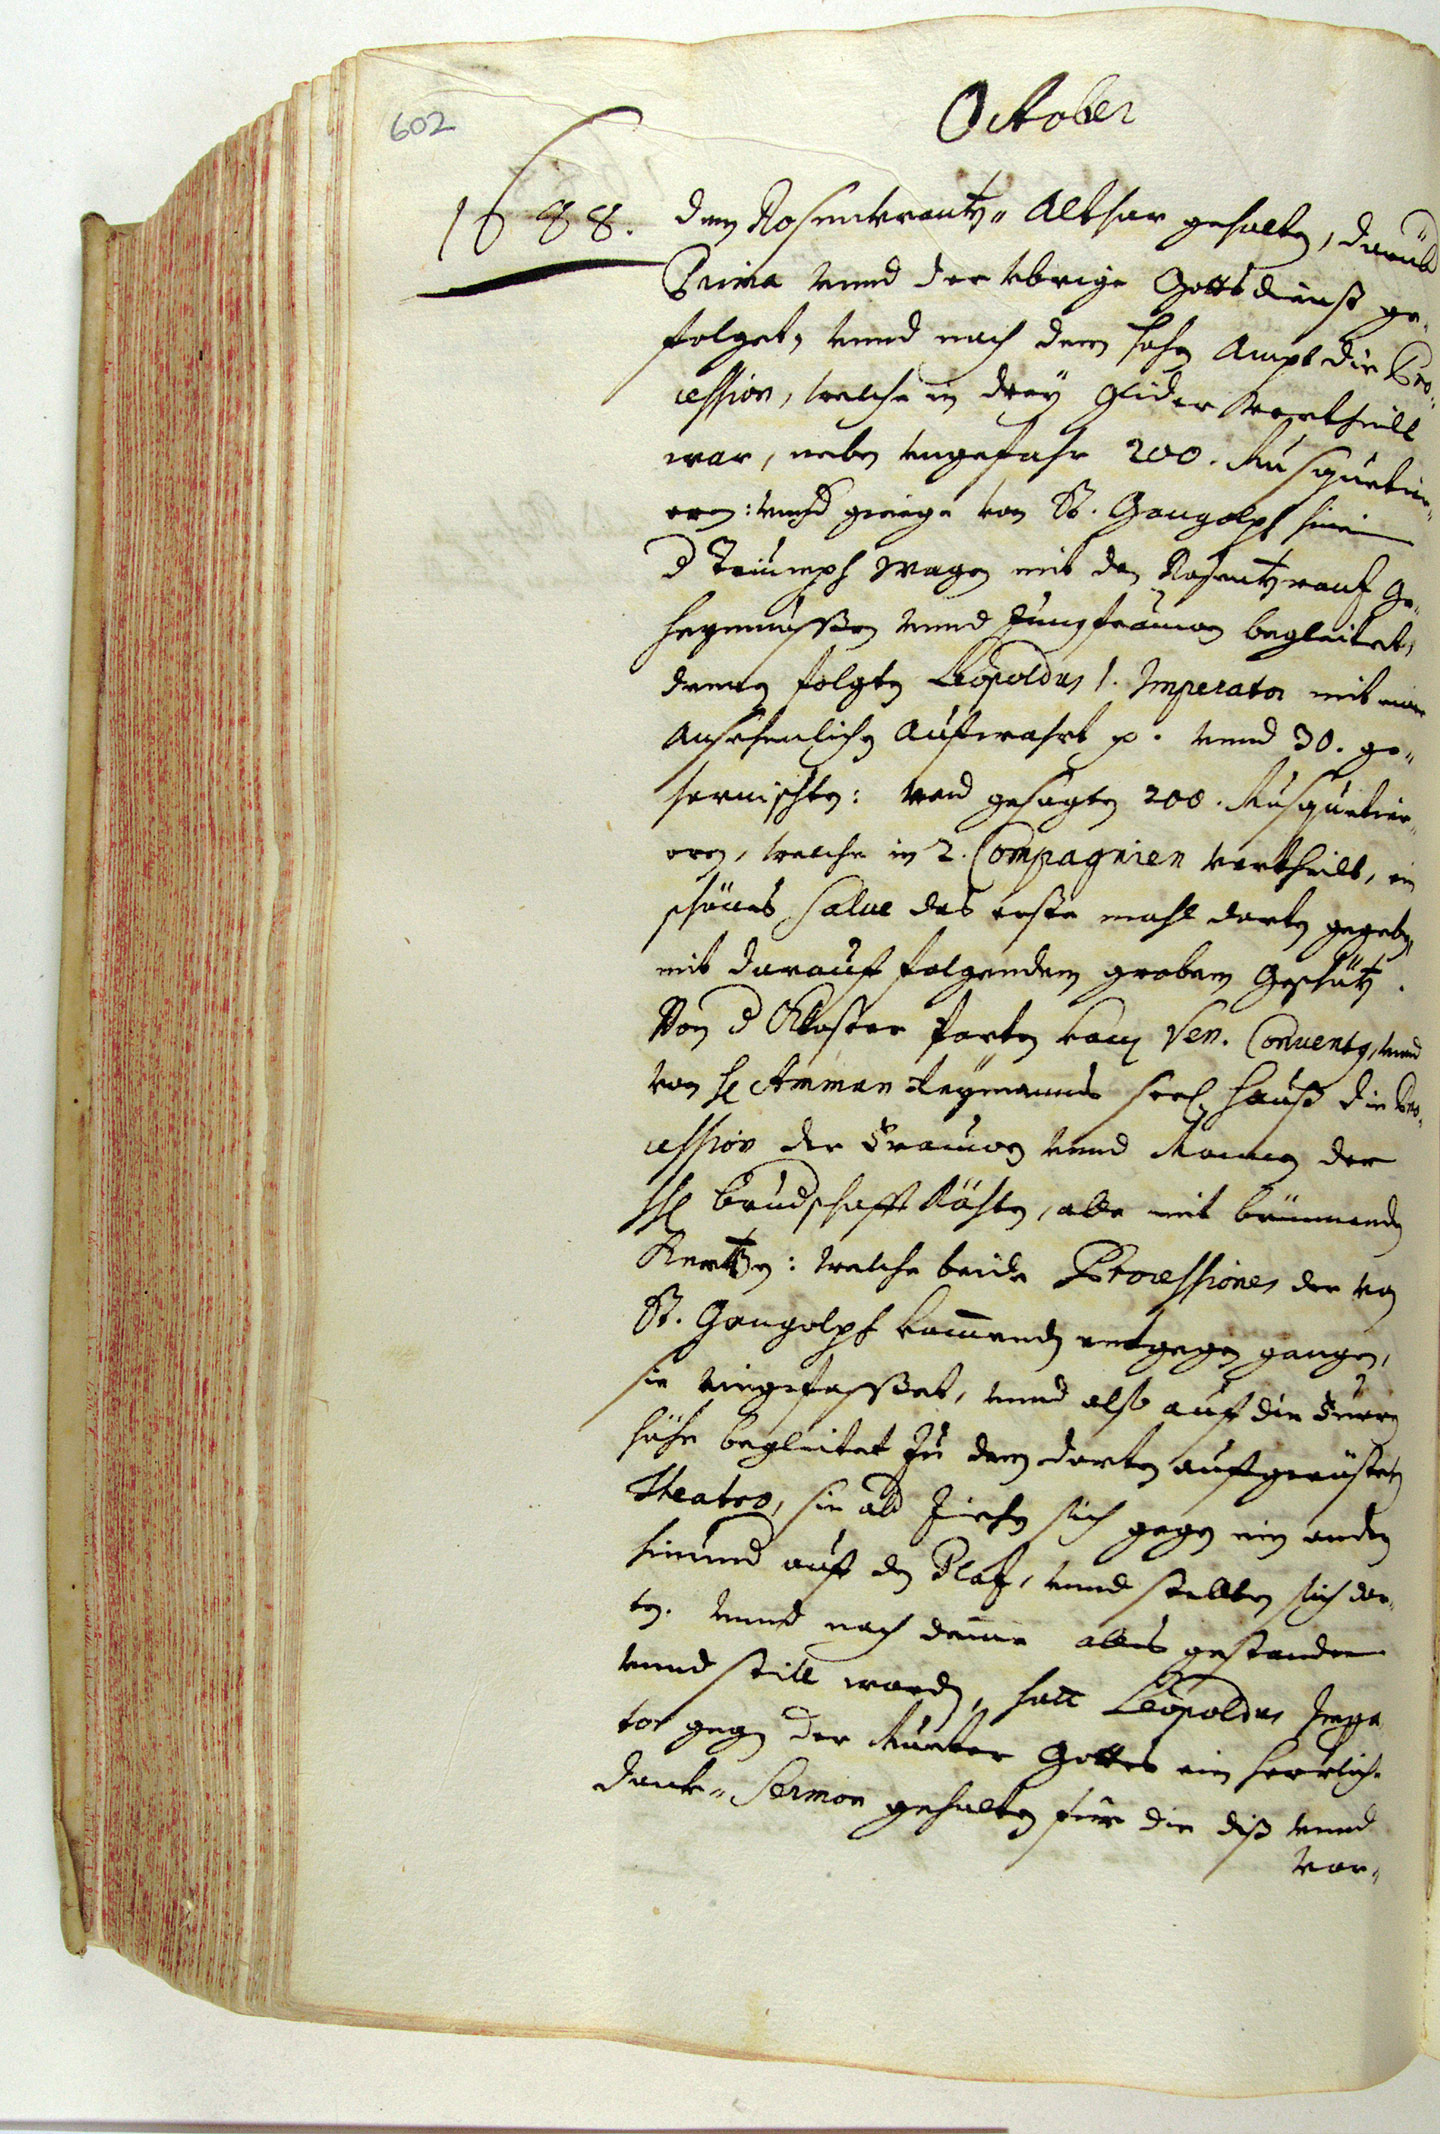 602
October
1688.
dem Rosenkrantz- Althar gehalten, darauf
Prima vnnd der vbrige Gottsdienst ge-
folget, vnnd nach dem hohen Ampt die Pro-
cession, welche in drey Glider vertheilt
war, neben vngefahr 200. Musquetie-
ren: vnnd gienge von St. Gangolph hinein
d Triumph wagen mit den Rosenkrantz Ge-
heymnussen vnnd Jungfrauwen begleitet,
denen folgten Leopoldus 1. Imperator mit einer
Ansehenlichen Aufwahrt p. vnnd 30. ge-
harnischten: vnd gesagten 200. Musquetie-
ren, welche in 2. Compagnien vertheilt, ein
schönes Salve das erste mahl dorten gegeben,
mit darauf folgendem grobem Geschütz.
Von d Closter Porten kam Ven. Conventus, vnnd
von H. Amman Reymanns seel. Hauß die Pro-
cession der Frauwen vnnd Mannen der
Bruderschafft Räthen, alle mit brünnenden
Kertzen: welche beide Processiones der von
St. Gangolph kommenden entgegen gangen,
sie eingefasset, vnnd also auf die
höhe begleitet zu dem dorten aufgerüsteten
Theatro, sie alß ziehen sich gegen ein anderen
hinumb auf den Platz, vnnd stellten sich dor-
ten. Vnnd nach deme alles gestanden
vnnd still worden, hatt Leopoldus Impera
tor gegen der Mutter Gottes ein herrliche
Danck- Sermon gehalten für die diß vnnd
vor-